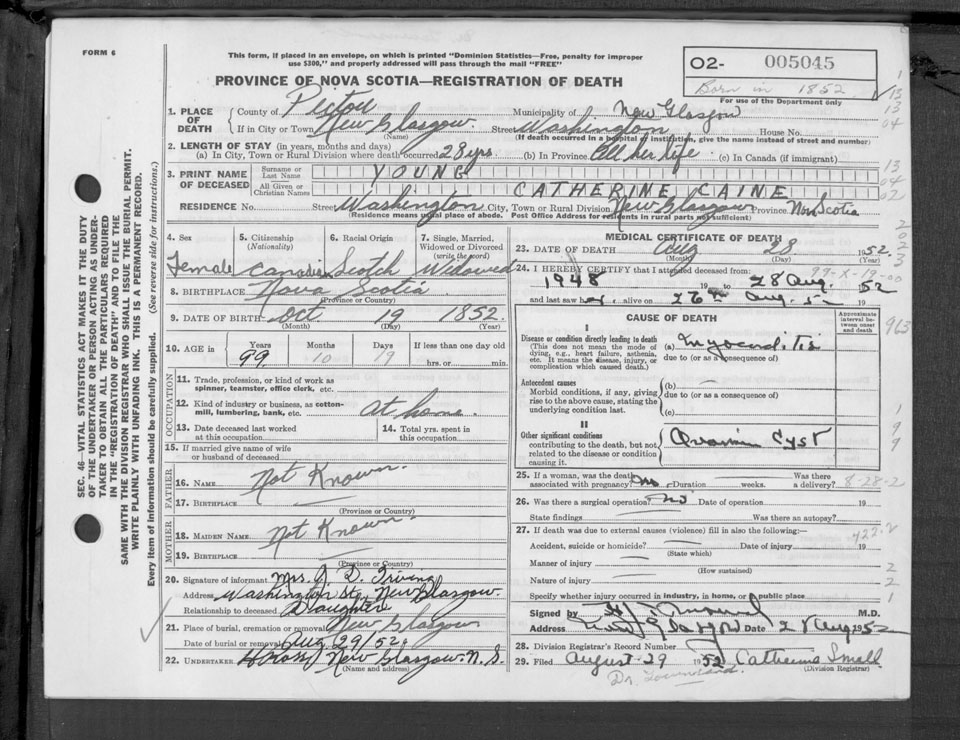 FORM 6
This form, if placed in an envelope, on which is printed "Dominion Statistics—Free, penalty for improper
use $300," and properly addressed will pass through the mail "FREE"
PROVINCE OF NOVA SCOTIA—REGISTRATION OF DEATH
O2- 005045
Born in 1852
For use of the Department only
1. PLACE OF DEATH County of Pictou Municipality of New Glasgow
If in City or Town New Glasgow. Street Washington House No.
(Name) (If death occurred in a hospital or institution, give the name instead of street and number)
2. LENGTH OF STAY (in years, months and days)
(a) In City, Town or Rural Division where death occurred 28 yrs (b) In Province All her life (c) In Canada (if immigrant)
3. PRINT NAME OF DECEASED Surname or Last Name YOUNG
All Given or Christian Names CATHERINE CAINE
RESIDENCE No. Street Washington City, Town or Rural Division New Glasgow Province Nova Scotia
(Residence means usual place of abode. Post Office Address for residents in rural parts not sufficient)
4. Sex Female
5. Citizenship (Nationality) Canadian
6. Racial Origin Scotch
7. Single, Married, Widowed or Divorced (write the word) Widowed
8. BIRTHPLACE Nova Scotia
(Province or Country)
9. DATE OF BIRTH Oct. 19 1852.
(Month) (Day) (Year)
10. AGE in Years Months Days If less than one day old
99 10 9 hrs. or min.
OCCUPATION
11. Trade, profession, or kind of work as spinner, teamster, office clerk, etc.
12. Kind of industry or business, as cotton-mill, lumbering, bank, etc. At home.
13. Date deceased last worked at this occupation
14. Total yrs. spent in this occupation
15. If married give name of wife or husband of deceased
FATHER
16. Name Not Known.
17. Birthplace
(Province or Country)
MOTHER
18. Maiden Name Not Known.
19. Birthplace
(Province or Country)
20. Signature of informant Mrs. J. D. Irving
Address Washington St. New Glasgow.
Relationship to deceased Daughter
21. Place of burial, cremation or removal New Glasgow
Date of burial or removal Aug 29/52.
22. Undertaker New Glasgow. N. S.
(Name and address)
MEDICAL CERTIFICATE OF DEATH
23. DATE OF DEATH Aug 28 1952
(Month) (Day) (Year)
24. I HEREBY CERTIFY that I attended deceased from
1948 19 to 28 Aug. 52
and last saw her alive on 26th Aug. 52
CAUSE OF DEATH
Approximate interval between onset and death
I
Disease or condition directly leading to death (a) Myocarditis
(This does not mean the mode of dying, e.g., heart failure, asthenia, etc. It means the disease, injury, or complication which caused death.)
due to (or as a consequence of)
Antecedent causes (b)
Morbid conditions, if any, giving rise to the above cause, stating the underlying condition last.
due to (or as a consequence of)
(c)
II
Other significant conditions contributing to the death, but not related to the disease or condition causing it. Ovarian Cyst
25. If a woman, was the death associated with pregnancy? no Duration weeks. Was there a delivery? 8-28-2
26. Was there a surgical operation? no Date of operation 19
State findings Was there an autopsy?
27. If death was due to external causes (violence) fill in also the following:—
422.2
Accident, suicide or homicide? Date of injury 19
(State which)
Manner of injury
(How sustained)
Nature of injury
Specify whether injury occurred in industry, in home, or in public place
Signed by M.D.
Address New Glasgow Date 28 Aug 1952
28. Division Registrar's Record Number
29. Filed August 29 1952 Catherine Small
(Division Registrar)
SEC. 46—VITAL STATISTICS ACT MAKES IT THE DUTY
OF THE UNDERTAKER OR PERSON ACTING AS UNDER-
TAKER TO OBTAIN ALL THE PARTICULARS REQUIRED
IN THE "REGISTRATION OF DEATH" AND TO FILE THE
SAME WITH THE DIVISION REGISTRAR WHO SHALL ISSUE THE BURIAL PERMIT.
WRITE PLAINLY WITH UNFADING INK. THIS IS A PERMANENT RECORD.
Every item of information should be carefully supplied. (See reverse side for instructions.)